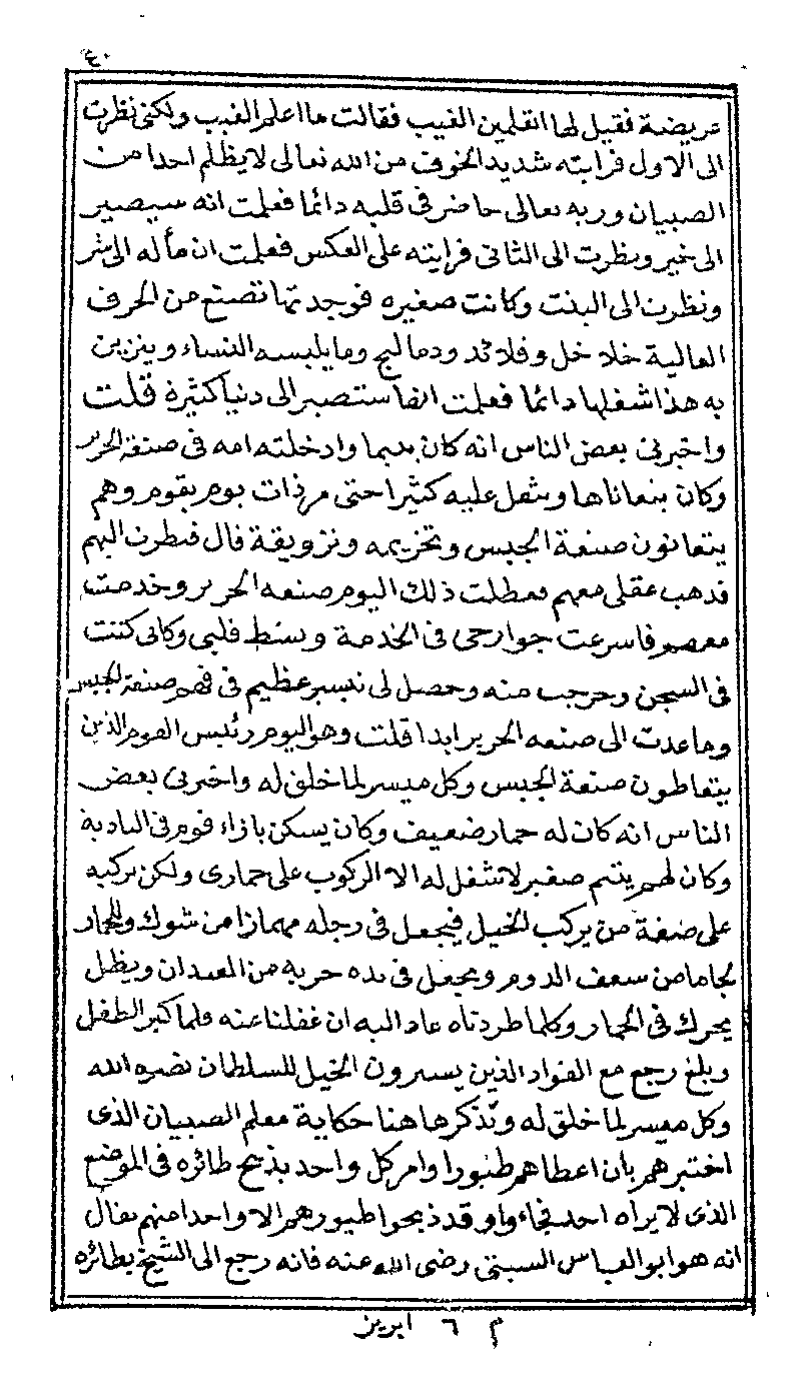 ٤٠
عريضة فقيل لها اتعلمين الغيب فقالت ما اعلم الغيب ولكنى نظرت
الى الاول فرايته شديد الخوف من الله تعالى لا يظلم احدا من
الصبيان وربه تعالى حاضر فى قلبه دائما فعلمت انه سيصير
الى خير ونظرت الى الثانى فرايته على العكس فعلمت ان مأله الى شر
ونظرت الى البنت وكانت صغيره فوجدتها تصنع من الخرق
البالية خلاخل وقلائد ودمالج وما يلبسه النساء ويتزين
به هذا شغلها دائما فعلمت انها ستصير الى دنيا كثيرة قلت
واخبرنى بعض الناس انه كان يتيما وادخلته امه فى صنعة الحرير
وكان يتعاناها ويثقل عليه كثيرا حتى مر ذات يوم بقوم وهم
يتعانون صنعة الجبس وتخزيمه وتزويقة قال فنظرت اليهم
فذهب عقلى معهم فعطلت ذلك اليوم صنعه الحرير وخدمت
معهم فاسرعت جوارحى فى الخدمة ونشط قلبى وكانى كنت
فى السجن وخرجت منه وحصل لى تيسير عظيم فى فهم صنعة الجبس
وما عدت الى صنعه الحرير ابدا قلت وهو اليوم رئيس القوم الذين
يتعاطون صنعة الجبس وكل ميسر لما خلق له واخبرنى بعض
الناس انه كان له حمار ضعيف وكان يسكن بازاء قوم فى البادية
وكان لهم يتيم صغير لا شغل له الا الركوب على حمارى ولكن يركبه
على صفة من يركب الخيل فيجعل فى رجله مهمازا من شوك وللحمار
لجاما من سعف الدوم ويجعل فى يده حربة من العيدان ويظل
يحرك فى الحمار وكلما طردناه عاد اليه ان غفلنا عنه فلما كبر الطفل
وبلغ رجع مع القواد الذين يسيرون الخيل للسلطان نصره الله
وكل ميسر لما خلق له وتذكر هاهنا حكاية معلم الصبيان الذى
اختبرهم بان اعطاهم طيورا وامر كل واحد بذبح طائره فى الموضع
الذى لا يراه احد فجاءوا وقد ذبحوا طيورهم الا واحدا منهم يقال
انه هو ابو العباس السبتى رضى الله عنه فانه رجع الى الشيخ بطائره
م ٦ ابريز